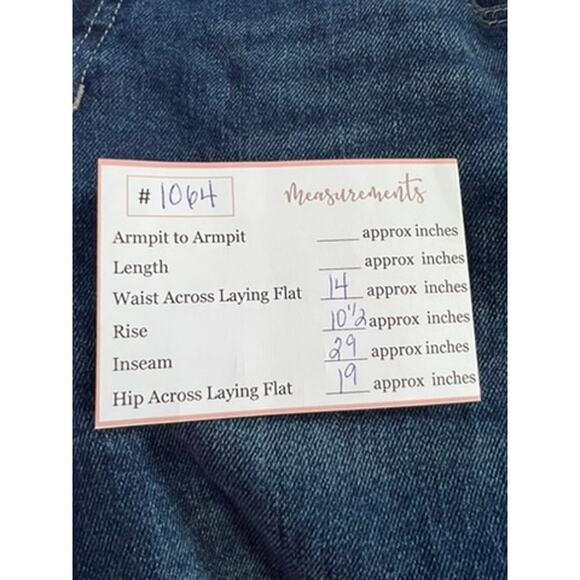 # 1064
Measurements
Armpit to Armpit ____ approx inches
Length ____ approx inches
Waist Across Laying Flat 14 approx inches
Rise 10 1/2 approx inches
Inseam 29 approx inches
Hip Across Laying Flat 19 approx inches